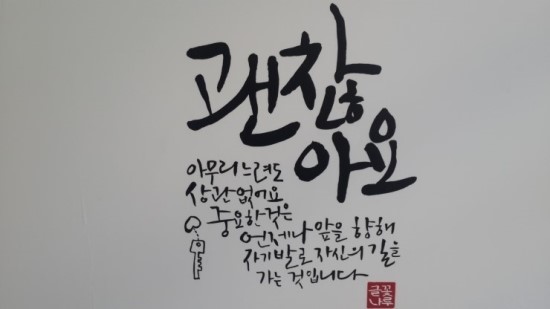 괜찮
아요
아무리 느려도
상관없어요
중요한것은
언제나 앞을 향해
자기발로 자신의 길을
가는 것입니다
글꽃
나루